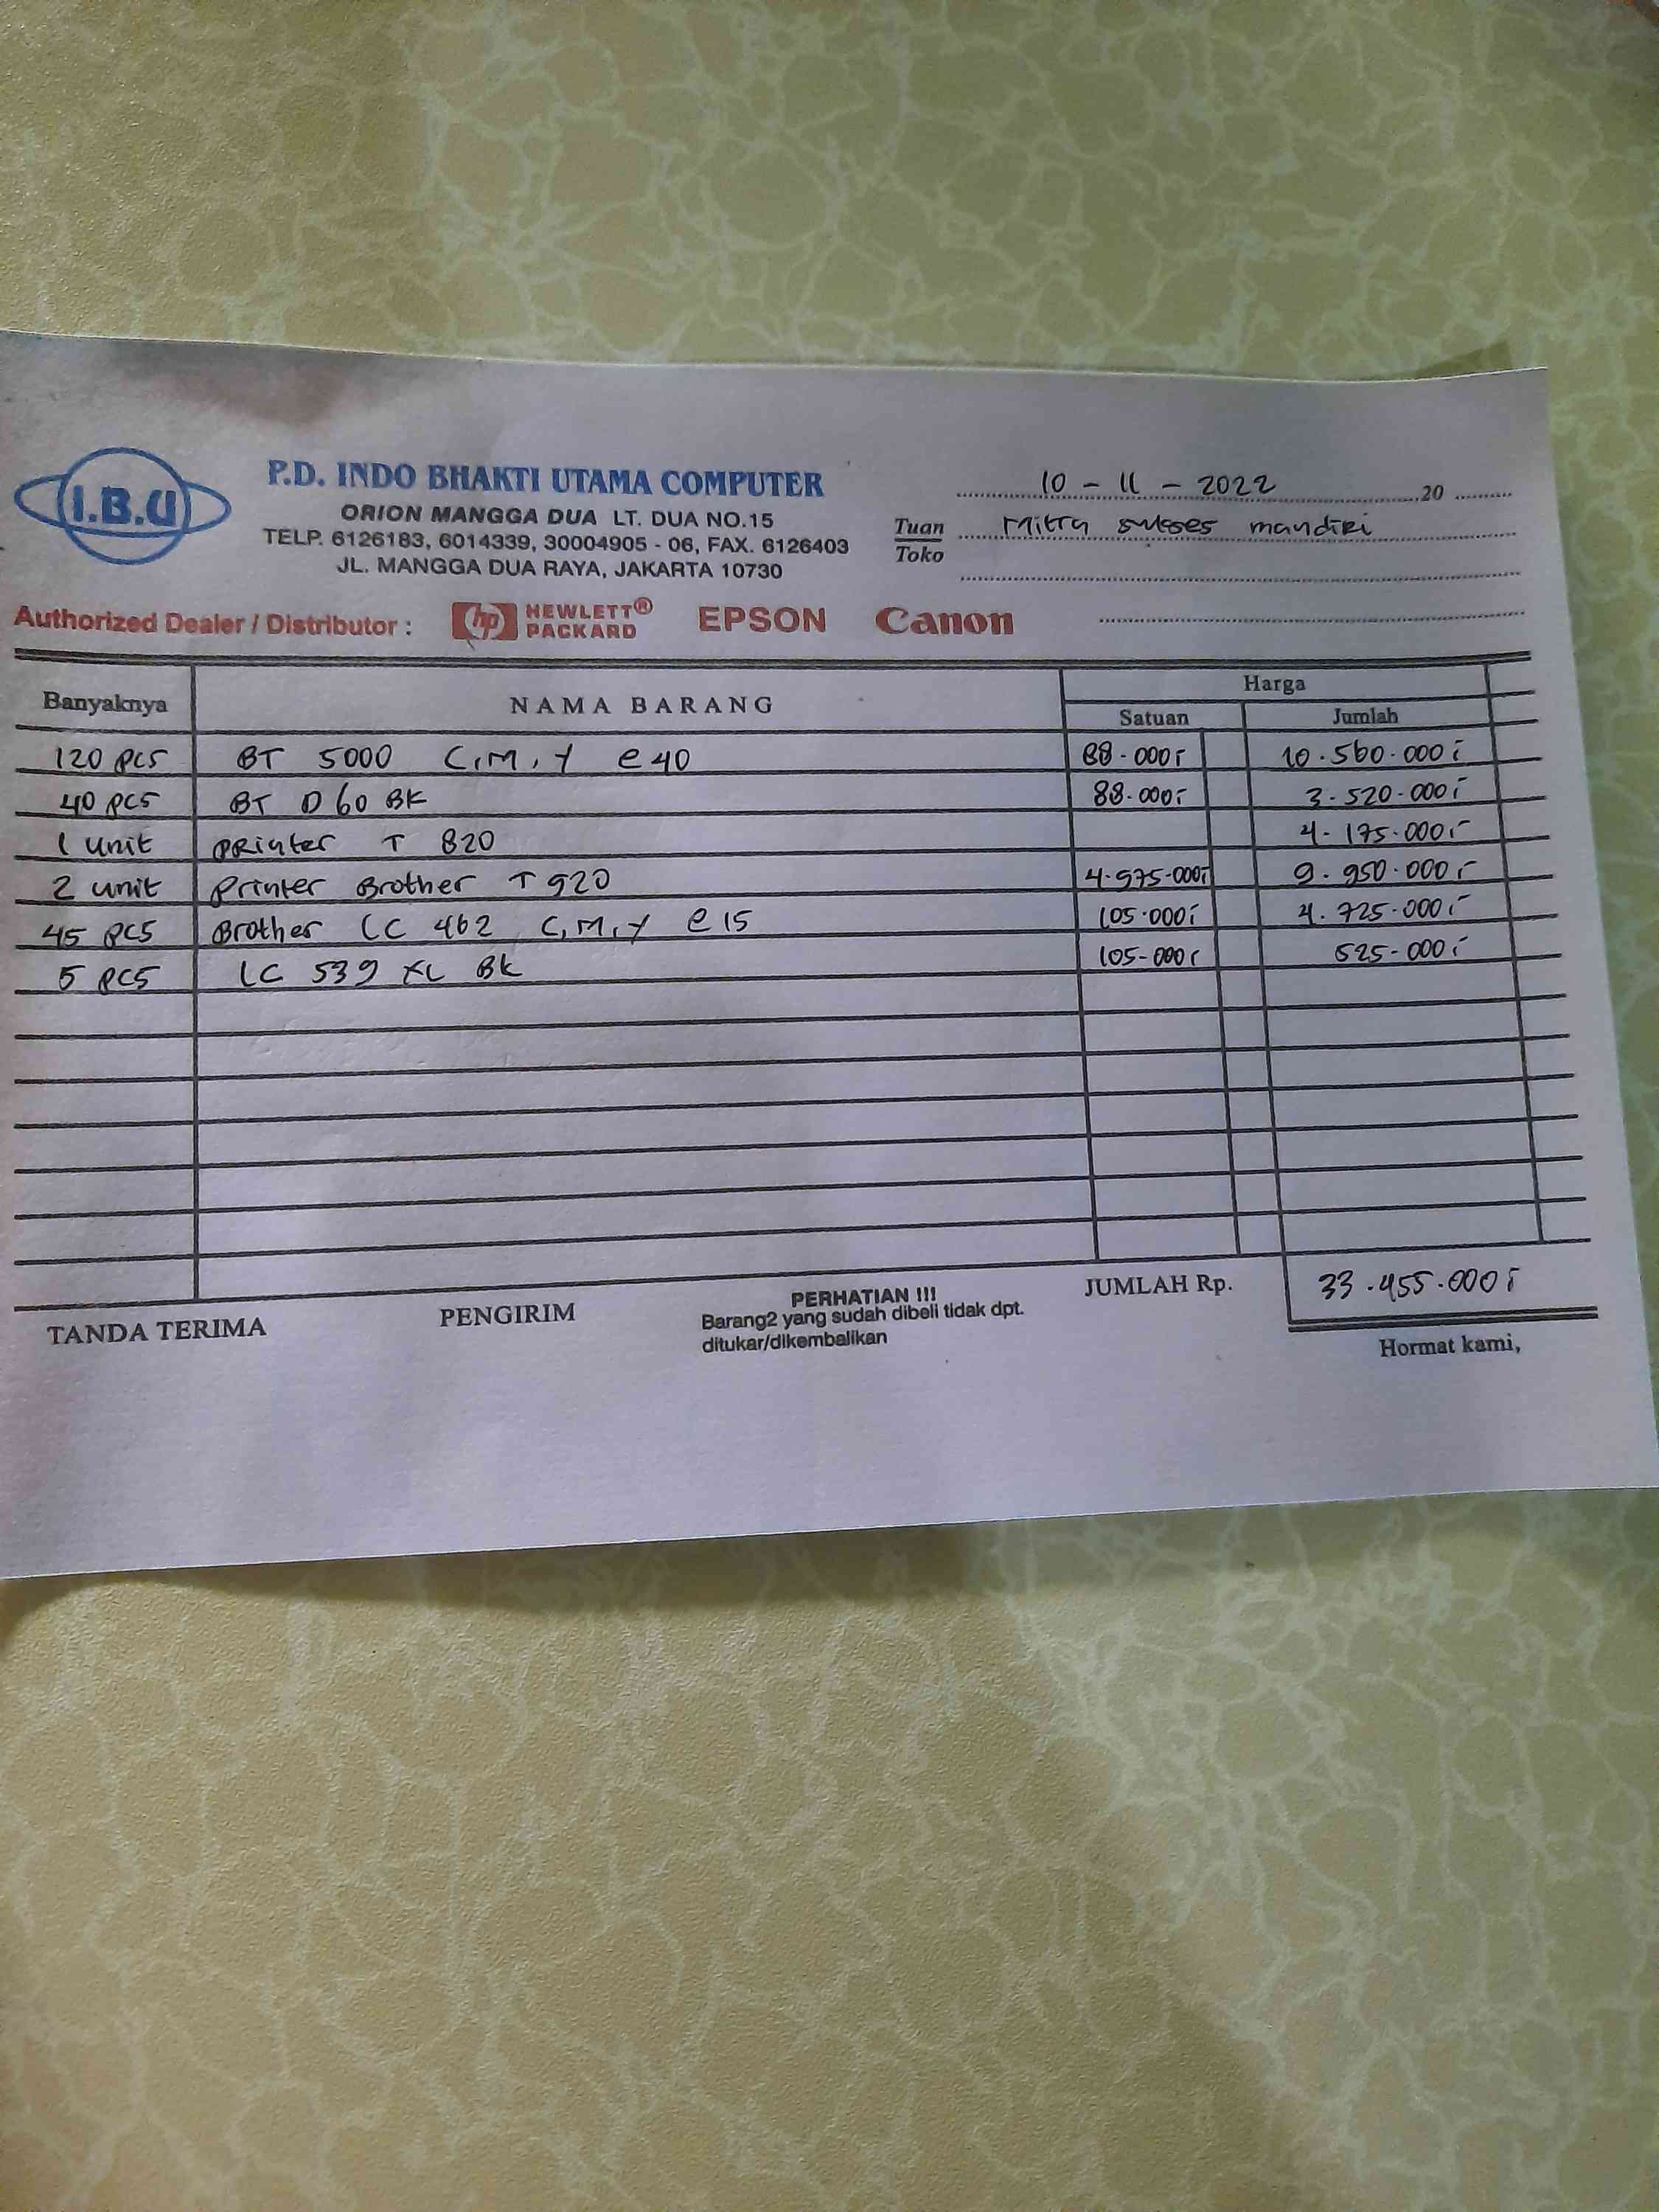 I.B.U
P.D. INDO BHAKTI UTAMA COMPUTER
ORION MANGGA DUA LT. DUA NO.15
TELP. 6126183, 6014339, 30004905 - 06, FAX. 6126403
JL. MANGGA DUA RAYA, JAKARTA 10730
10 - 11 - 2022 20
Tuan Mitra sukses mandiri
Toko
Authorized Dealer / Distributor : hp HEWLETT® PACKARD EPSON Canon
Banyaknya NAMA BARANG Harga
Satuan Jumlah
120 pcs BT 5000 C,M,Y @ 40 88.000,- 10.560.000,-
40 pcs BT D60 BK 88.000,- 3.520.000,-
1 unit Printer T 820 4.175.000,-
2 unit Printer Brother T 920 4.975.000,- 9.950.000,-
45 pcs Brother LC 462 C,M,Y @ 15 105.000,- 4.725.000,-
5 pcs LC 539 XL BK 105.000,- 525.000,-
JUMLAH Rp. 33.455.000,-
TANDA TERIMA PENGIRIM PERHATIAN !!!
Barang2 yang sudah dibeli tidak dpt.
ditukar/dikembalikan
Hormat kami,